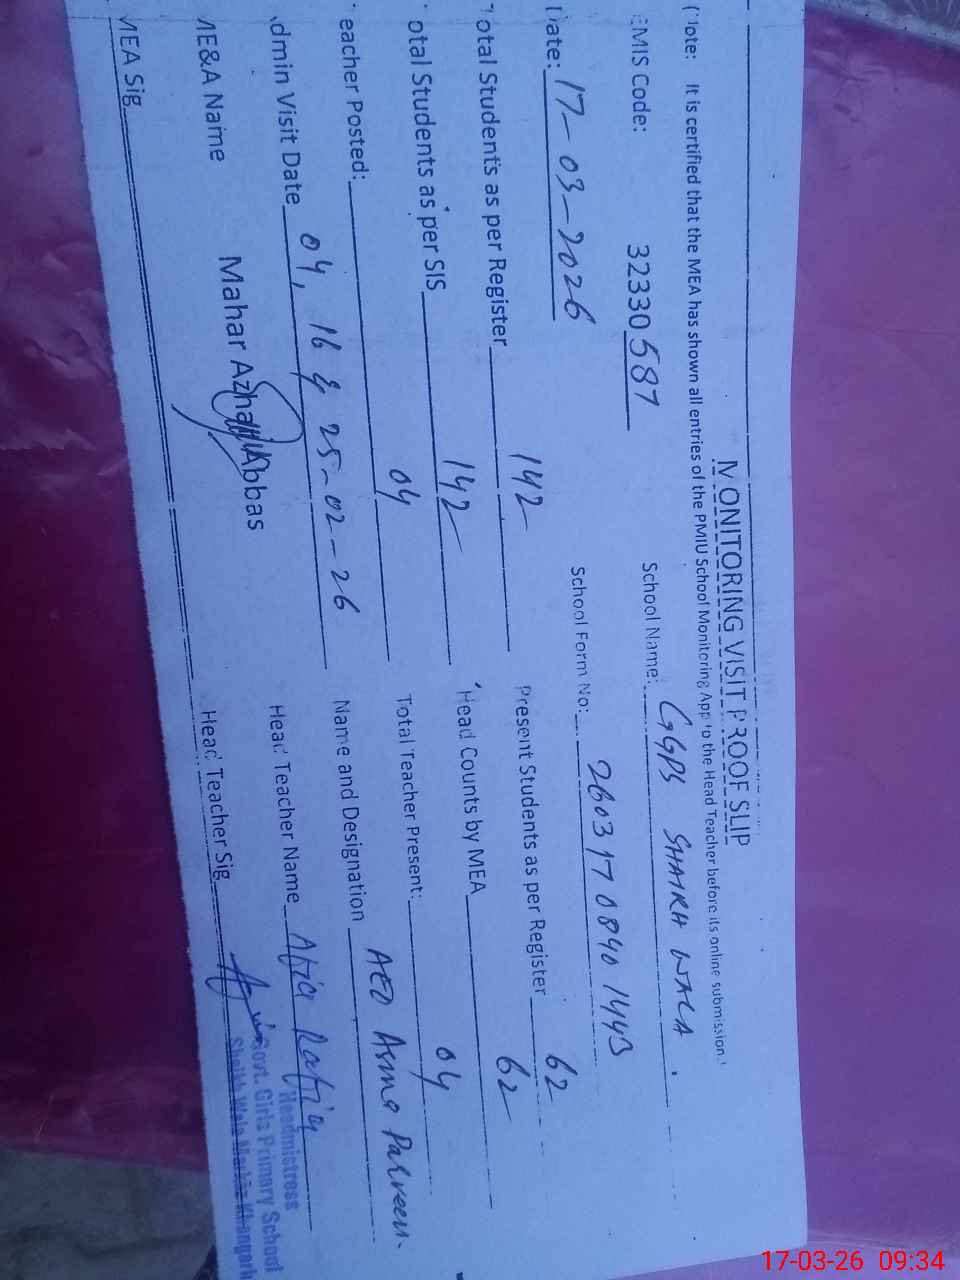 MONITORING VISIT PROOF SLIP
(Note: It is certified that the MEA has shown all entries of the PMIU School Monitoring App to the Head Teacher before its online submission.)
EMIS Code: 32330587 School Name: GGPS SHAIKH WALA
Date: 17-03-2026 School Form No: 2603170840 1443
Total Students as per Register 142 Present Students as per Register 62
Total Students as per SIS 142 Head Counts by MEA 62
Teacher Posted: 04 Total Teacher Present: 04
Admin Visit Date 04, 16 & 25-02-26 Name and Designation AEO Asma Parveen.
ME&A Name Mahar Azhar Abbas Head Teacher Name Atia Rafiq
MEA Sig Head Teacher Sig
Headmistress
Govt. Girls Primary School
Sheikh Wala Markaz Khangarh
17-03-26 09:34